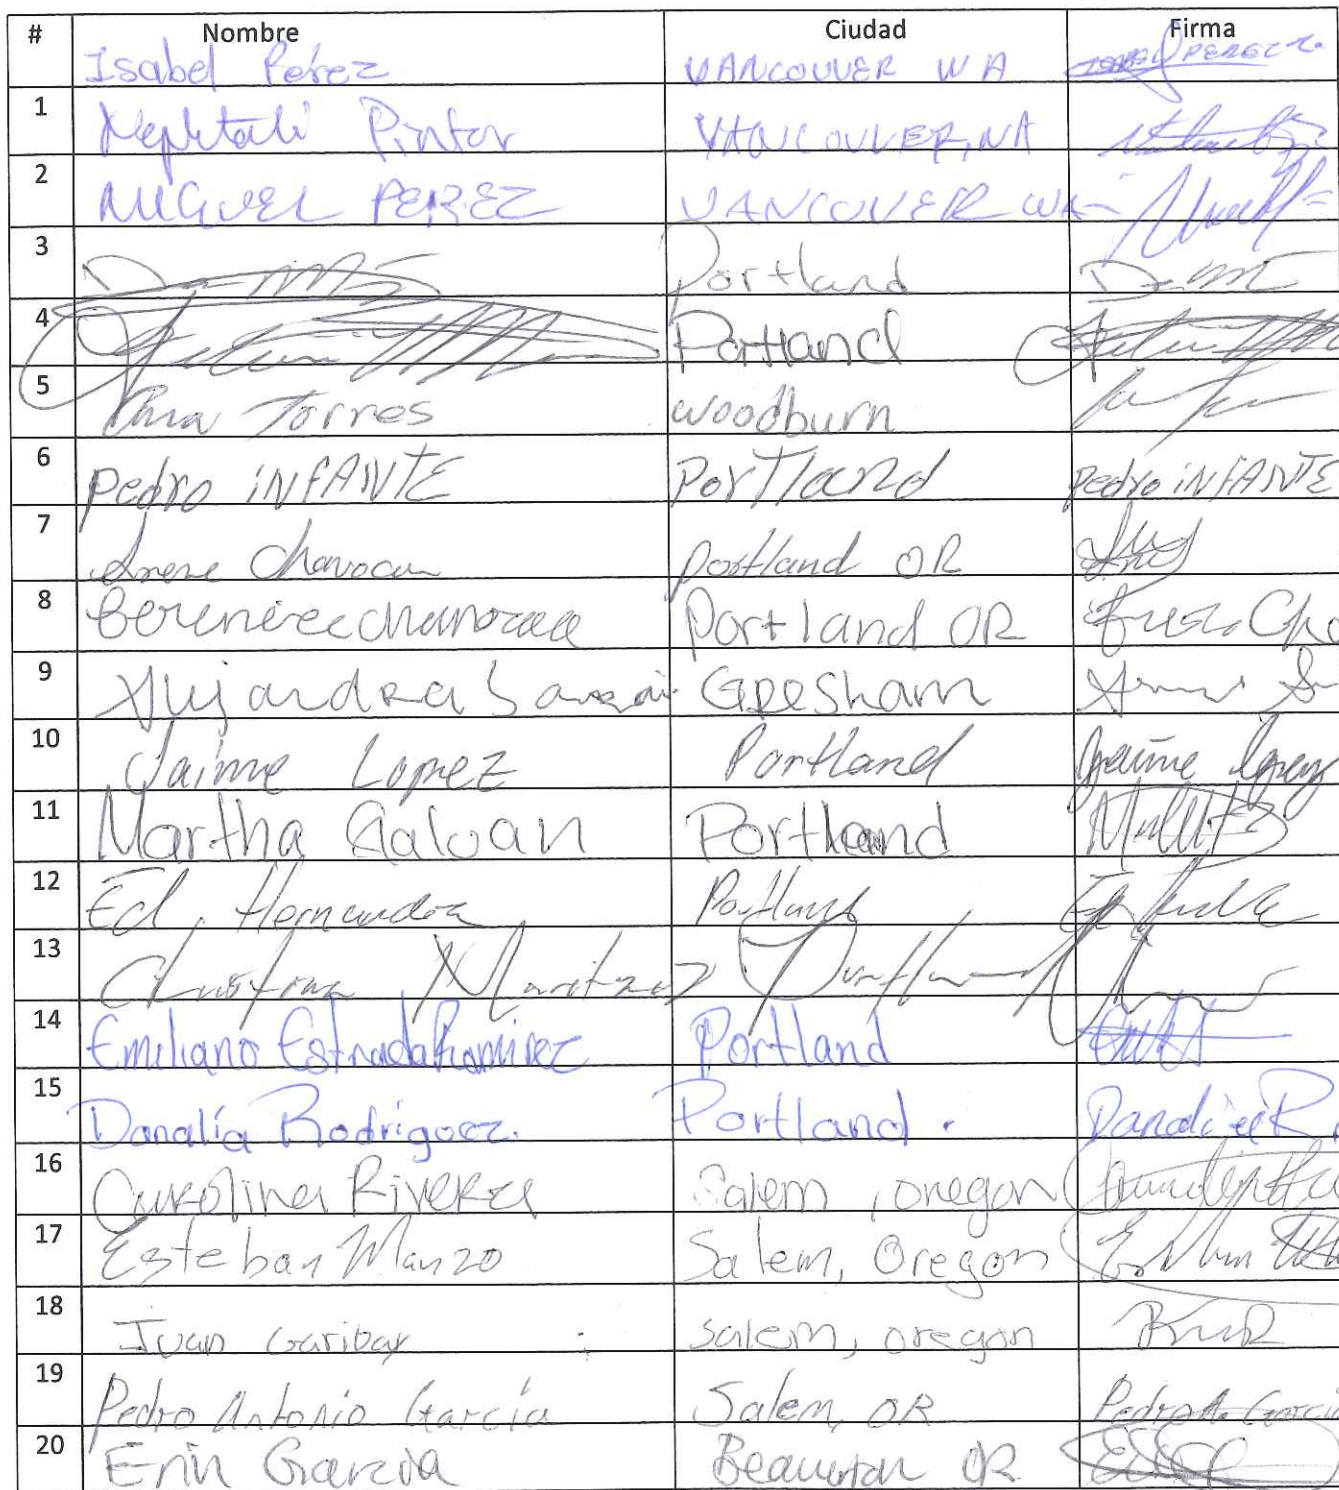 # Nombre Ciudad Firma
Isabel Perez VANCOUVER WA PEREZ
1 Nephtali Pintor VANCOUVER, WA
2 MIGUEL PEREZ VANCOUVER WA
3 Portland
4 Portland
5 Torres woodburn
6 pedro iNFANTE Portland pedro iNFANTE
7 Irene Portland OR
8 Berenice Portland OR
9 Alejandra Gresham
10 Jaime Lopez Portland Jaime Lopez
11 Martha Galvan Portland
12 Ed. Hernandez Portland
13 Portland
14 Emiliano Estrada Ramirez Portland
15 Danalía Rodriguez. Portland. Danalia R
16 Carolina Rivera Salem, oregon
17 Esteban Manzo Salem, Oregon
18 Juan Garibay salem, oregon
19 Pedro Antonio García Salem, OR Pedro A. Garcia
20 Erin Garcia Beaverton OR